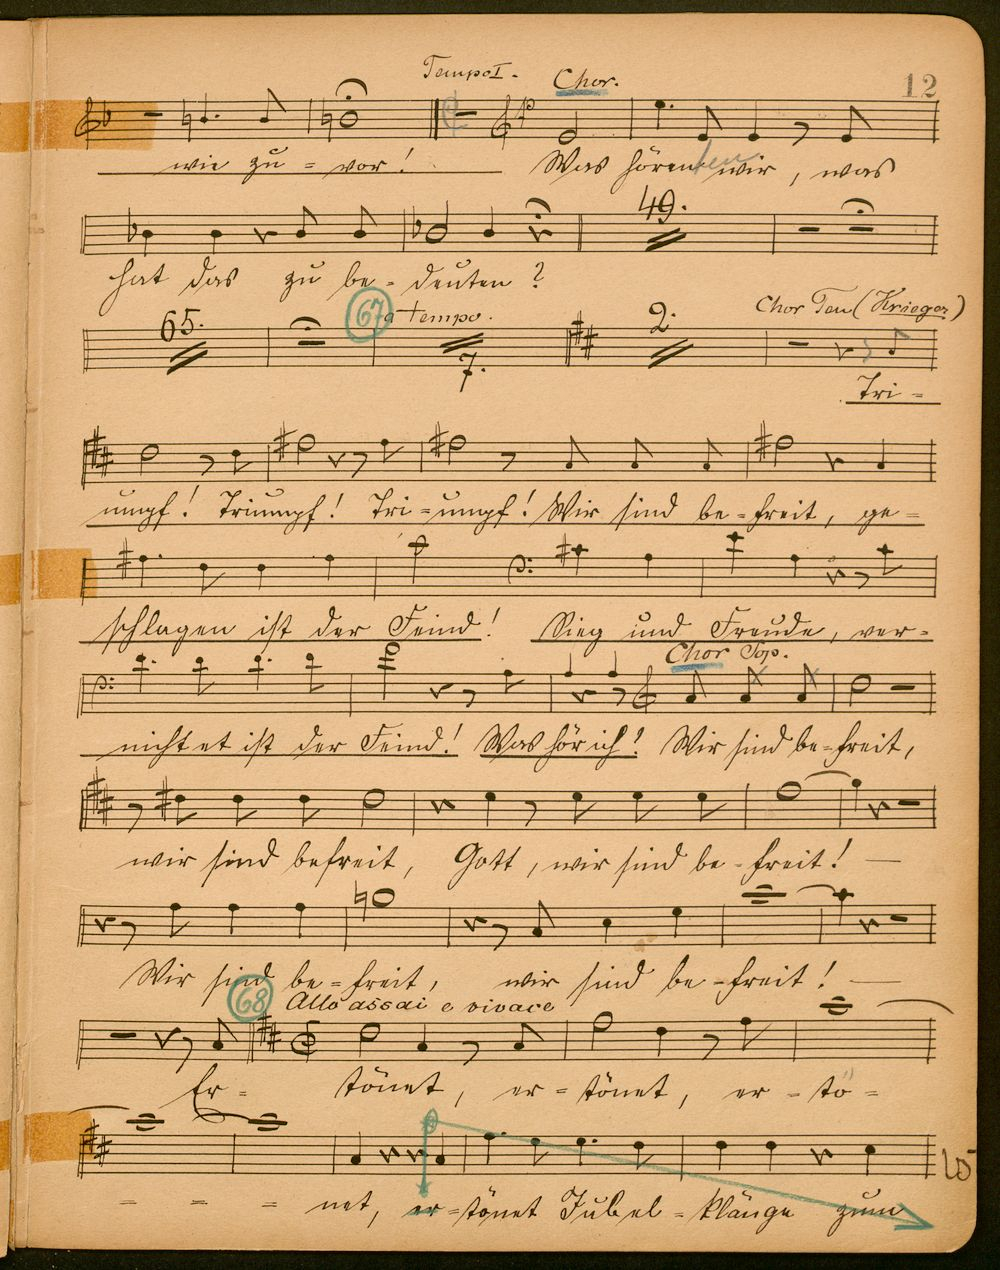 Tempo I. Chor. 12
wie zu = vor! Was hören wir, was
49.
hat das zu be- deuten?
65. 67 a tempo. 7. 2. Chor Ten (Krieger)
Tri =
umpf! Triumpf! Tri = umpf! Wir sind be = freit, ge =
schlagen ist der Feind! Sieg und Freude, ver =
Chor Sop.
nichtet ist der Feind! Was hör ich! Wir sind be = freit,
wir sind befreit, Gott, wir sind be = freit! —
Wir sind be = freit, wir sind be = freit! —
68 Allo assai e vivace
Er = tönet, er = tönet, er = tö =
= = = net, er = tönet Jubel = klänge zum